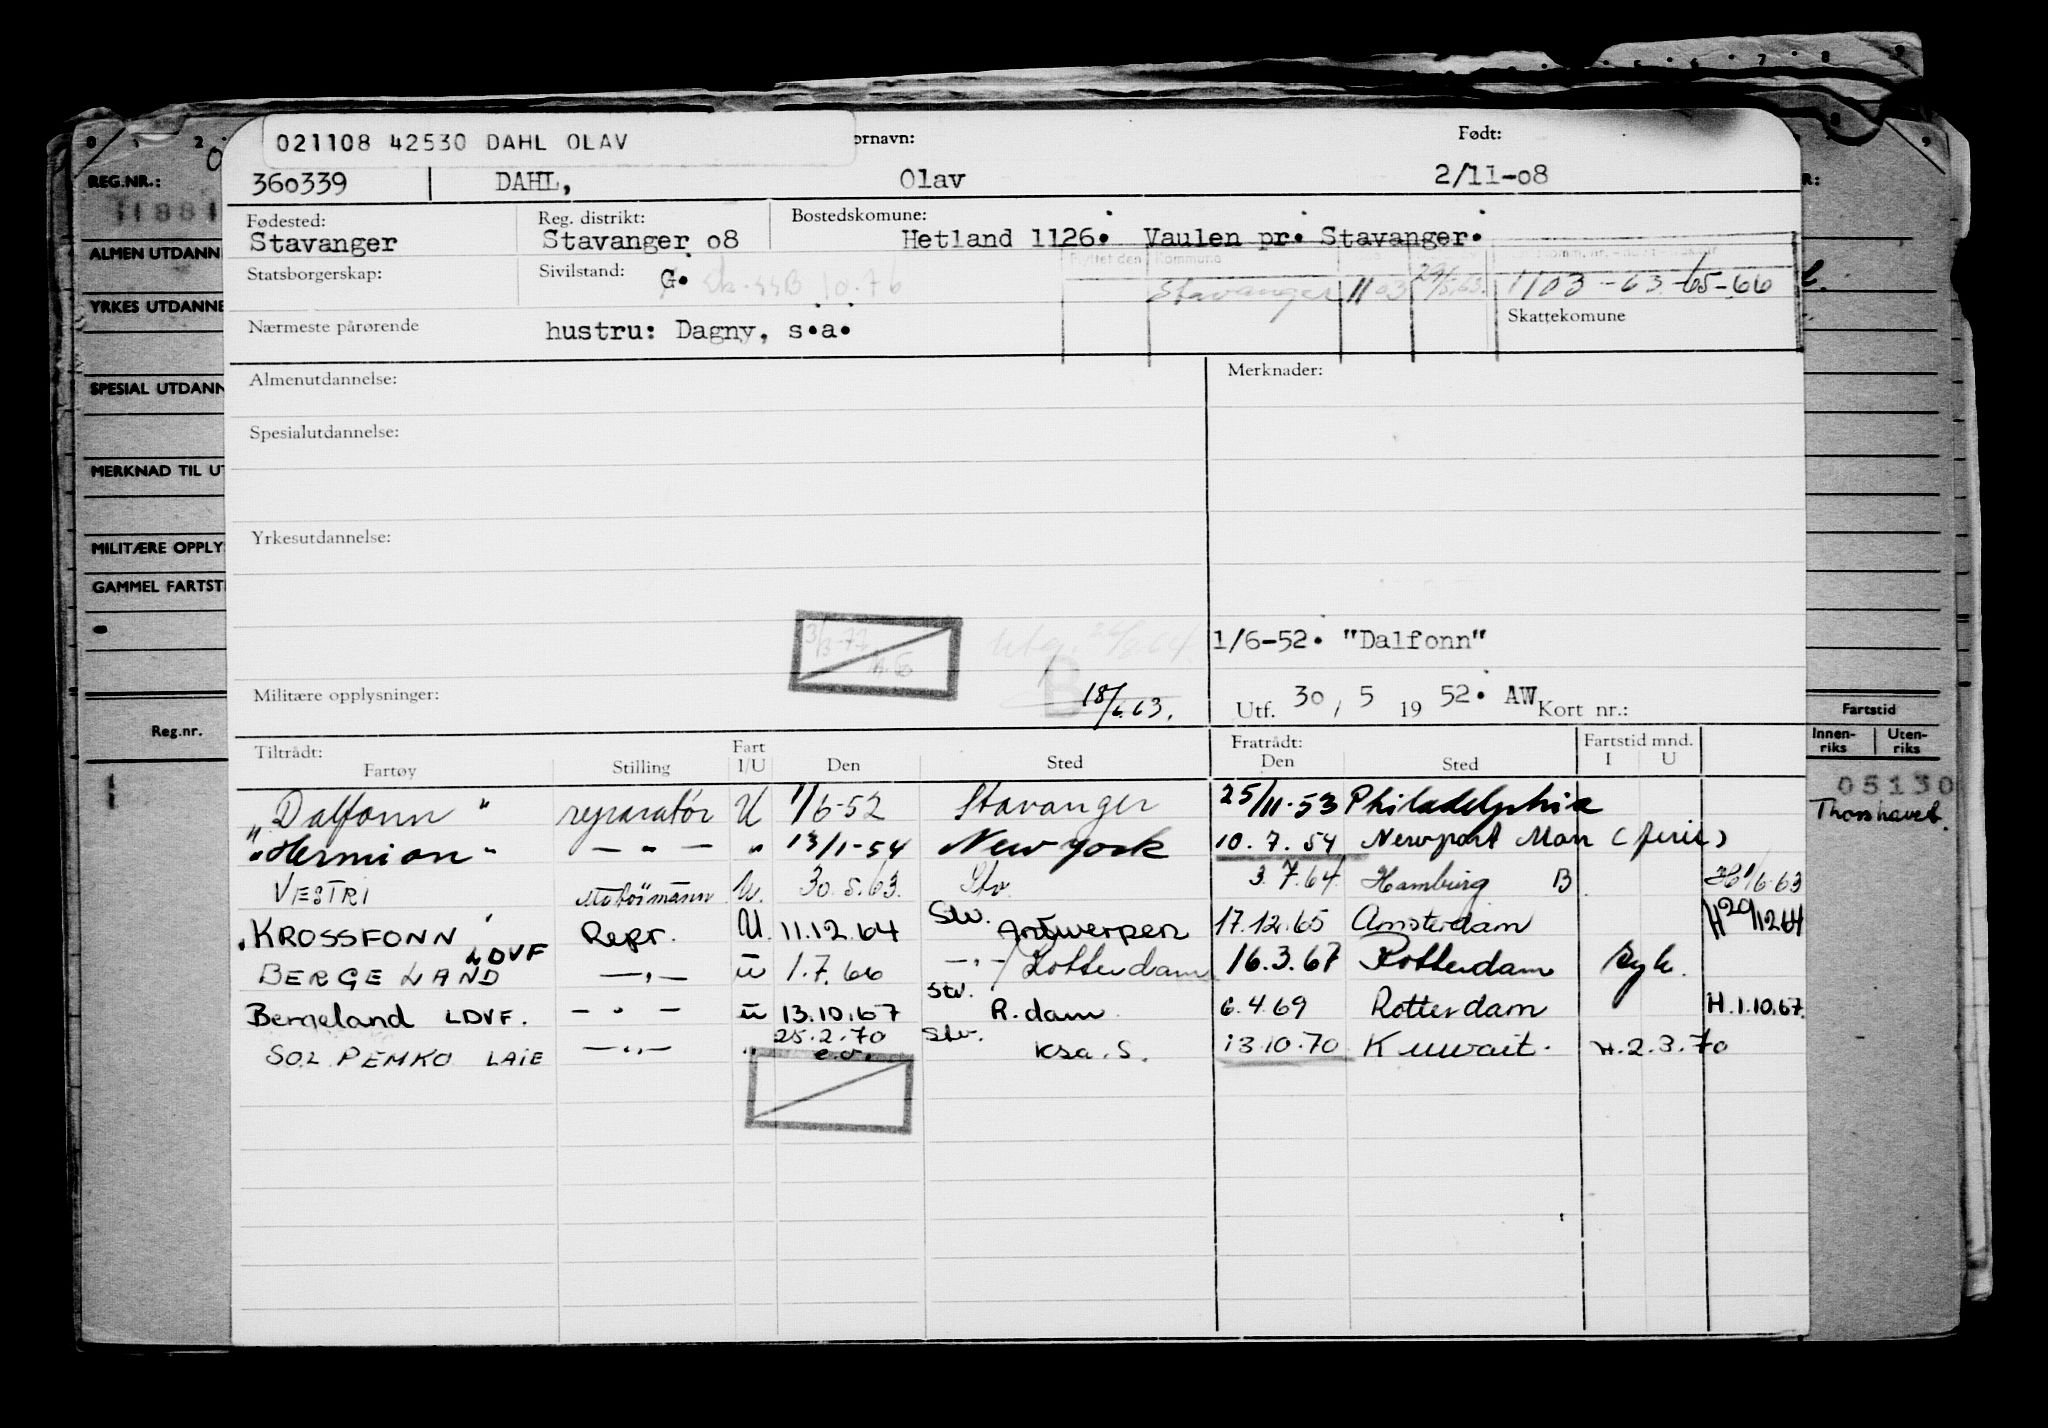 021108 42530 DAHL OLAV
ornavn: Født:
360339 DAHL, Olav 2/11-08
Fødested: Reg. distrikt: Bostedskomune:
Stavanger Stavanger 08 Hetland 1126. Vaulen pr. Stavanger.
Statsborgerskap: Sivilstand: G.
Kommune
Stavanger 1103 1103-63-65-66
Skattekomune
Nærmeste pårørende hustru: Dagny, s.a.
Almenutdannelse: Merknader:
Spesialutdannelse:
Yrkesutdannelse:
1/6-52. "Dalfonn"
Militære opplysninger: B 18/6.63. Utf. 30 / 5 19 52. AW Kort nr.:
Tiltrådt: Fratrådt: Fartstid mnd.
Fartøy Stilling Fart I/U Den Sted Den Sted I U
"Dalfonn" reparatør U 1/6-52 Stavanger 25/11-53 Philadelphia
"Hermion" — " — " 13/1-54 New York 10.7.54 Newport Mon (ferie)
VESTRI Motormann U. 30.5.63. Stv. 3.7.64 Hamburg B 1/6.63
KROSSFONN Repr. U. 11.12.64 Stv. Antwerpen 17.12.65 Amsterdam H 20/12 64
BERGELAND LDVF — " — U 1.7.66 — " — / Rotterdam 16.3.67 Rotterdam syk.
Bergeland LDVF. — " — U 13.10.67 Stv. R.dam 6.4.69 Rotterdam H.1.10.67.
SOL PEMKO LAIE — " — " 25.2.70 e.o. Stv. Ksa. S. 13.10.70 Kuwait. H.2.3.70
REG.NR.:
ALMEN UTDANN
YRKES UTDANNE
SPESIAL UTDANN
MERKNAD TIL UT
MILITÆRE OPPLYS
GAMMEL FARTST
Reg.nr.
Fartstid
Innen-riks Uten-riks
05130
Thorshavet.